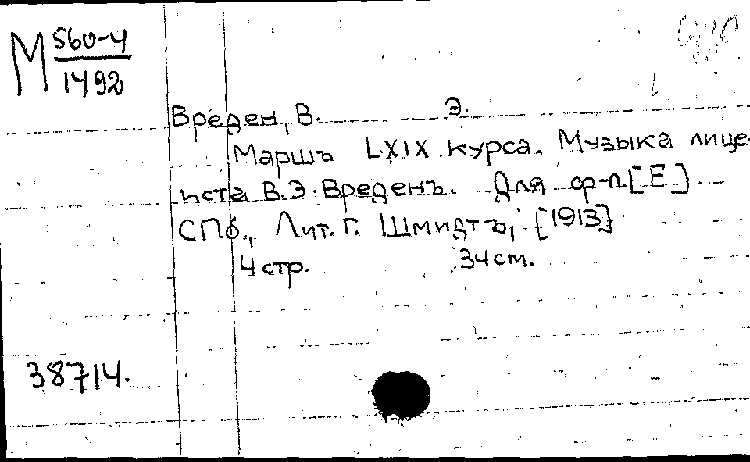 М 560-4
1492
Вреден, В. Э.
Маршъ LXIX курса. Музыка лице-
иста В.Э. Вреденъ. Для ф-п. [E]
СПб., Лит. Г. Шмидтъ, [1913]
4 стр. 34 см.
38714.